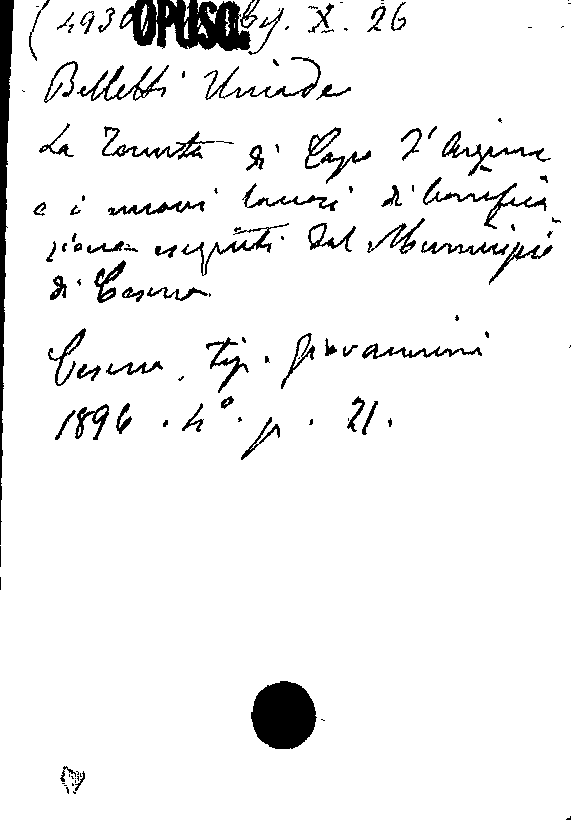 (4930 OPUSC. X. 26
Belletti Uniade
La Tenuta di Capo d'Argine
e i nuovi lavori di bonifica
zione eseguiti dal Municipio
di Cesena
Cesena, tip. Giovannini
1896. 4°. p. 21.